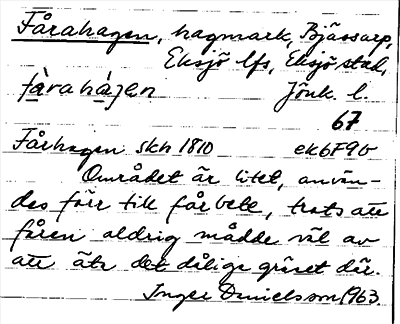 Fårahagen, hagmark, Bjässarp,
Eksjö lfs, Eksjö stad,
fàrahàgen Jönk. l.
67
Fårhagen skh 1810 ek6F9b
Området är litet, använ-
des förr till fårbete, trots att
fåren aldrig mådde väl av
att äta det dåliga gräset där.
Inger Danielsson 1963.